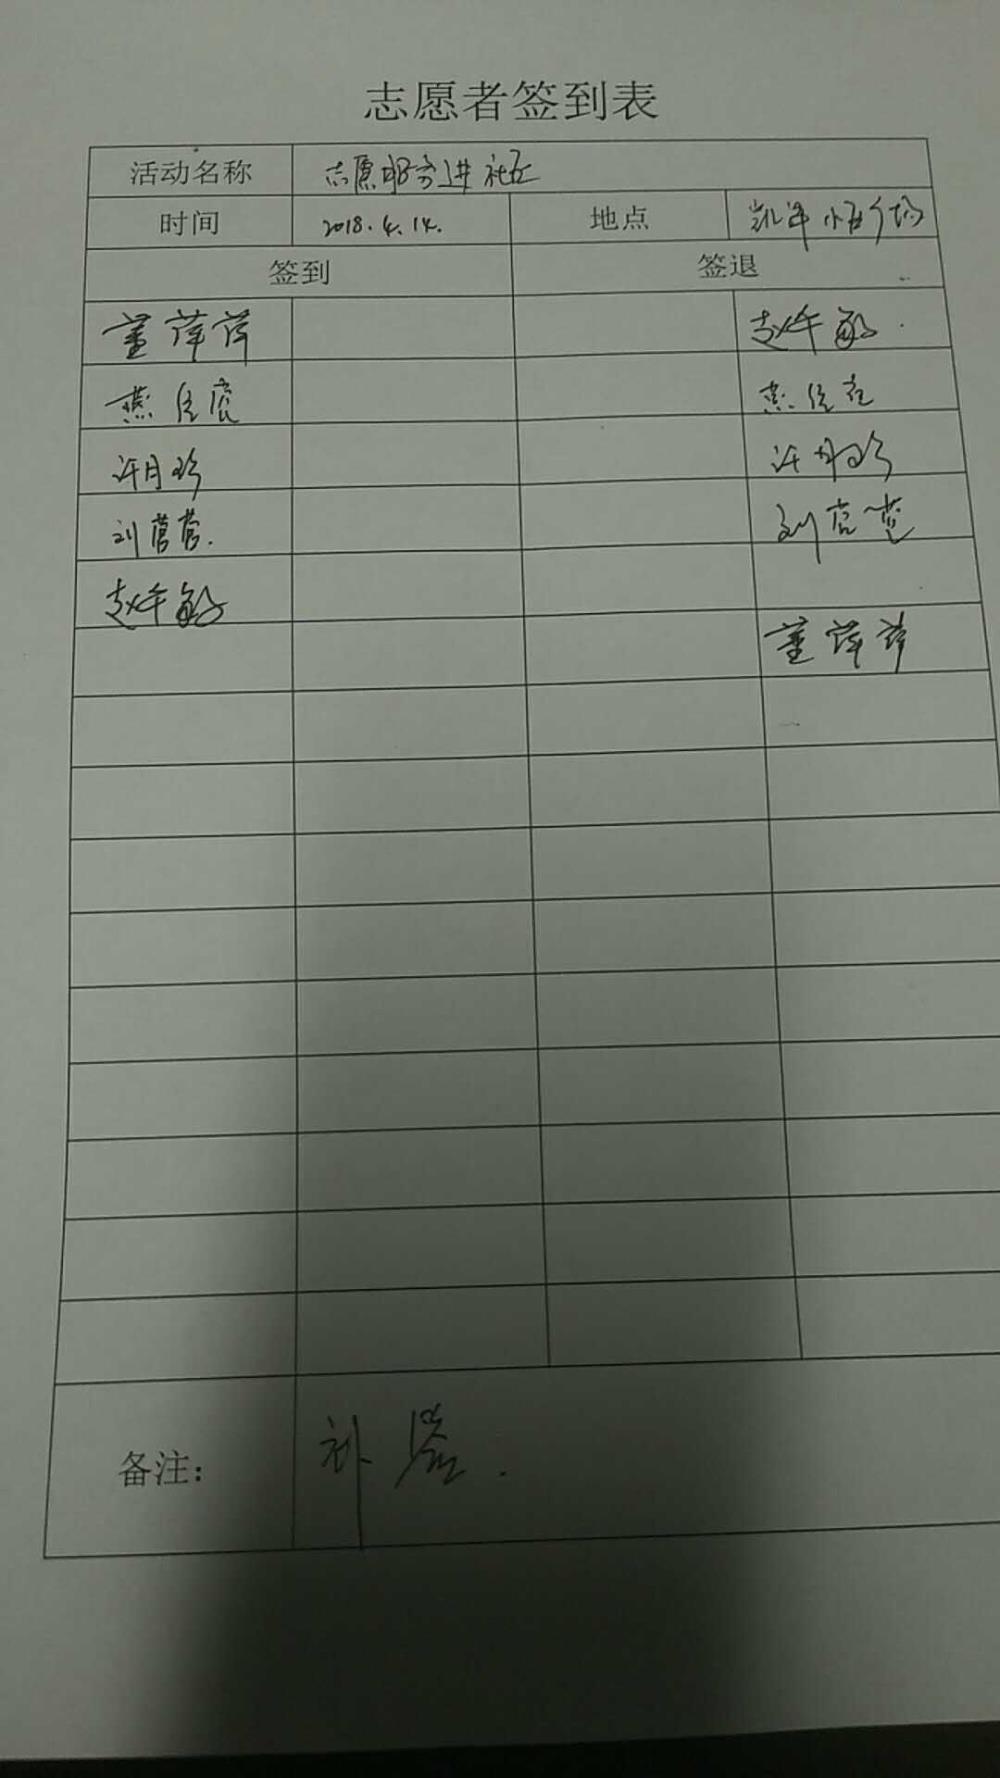 志愿者签到表
活动名称 志愿服务进社区
时间 2018.4.14. 地点 凯洋小区广场
签到 签退
董萍萍 赵午敏
燕佳宸 燕佳宸
许月珍 许月珍
刘营营. 刘营营
赵午敏
董萍萍
备注: 补签.